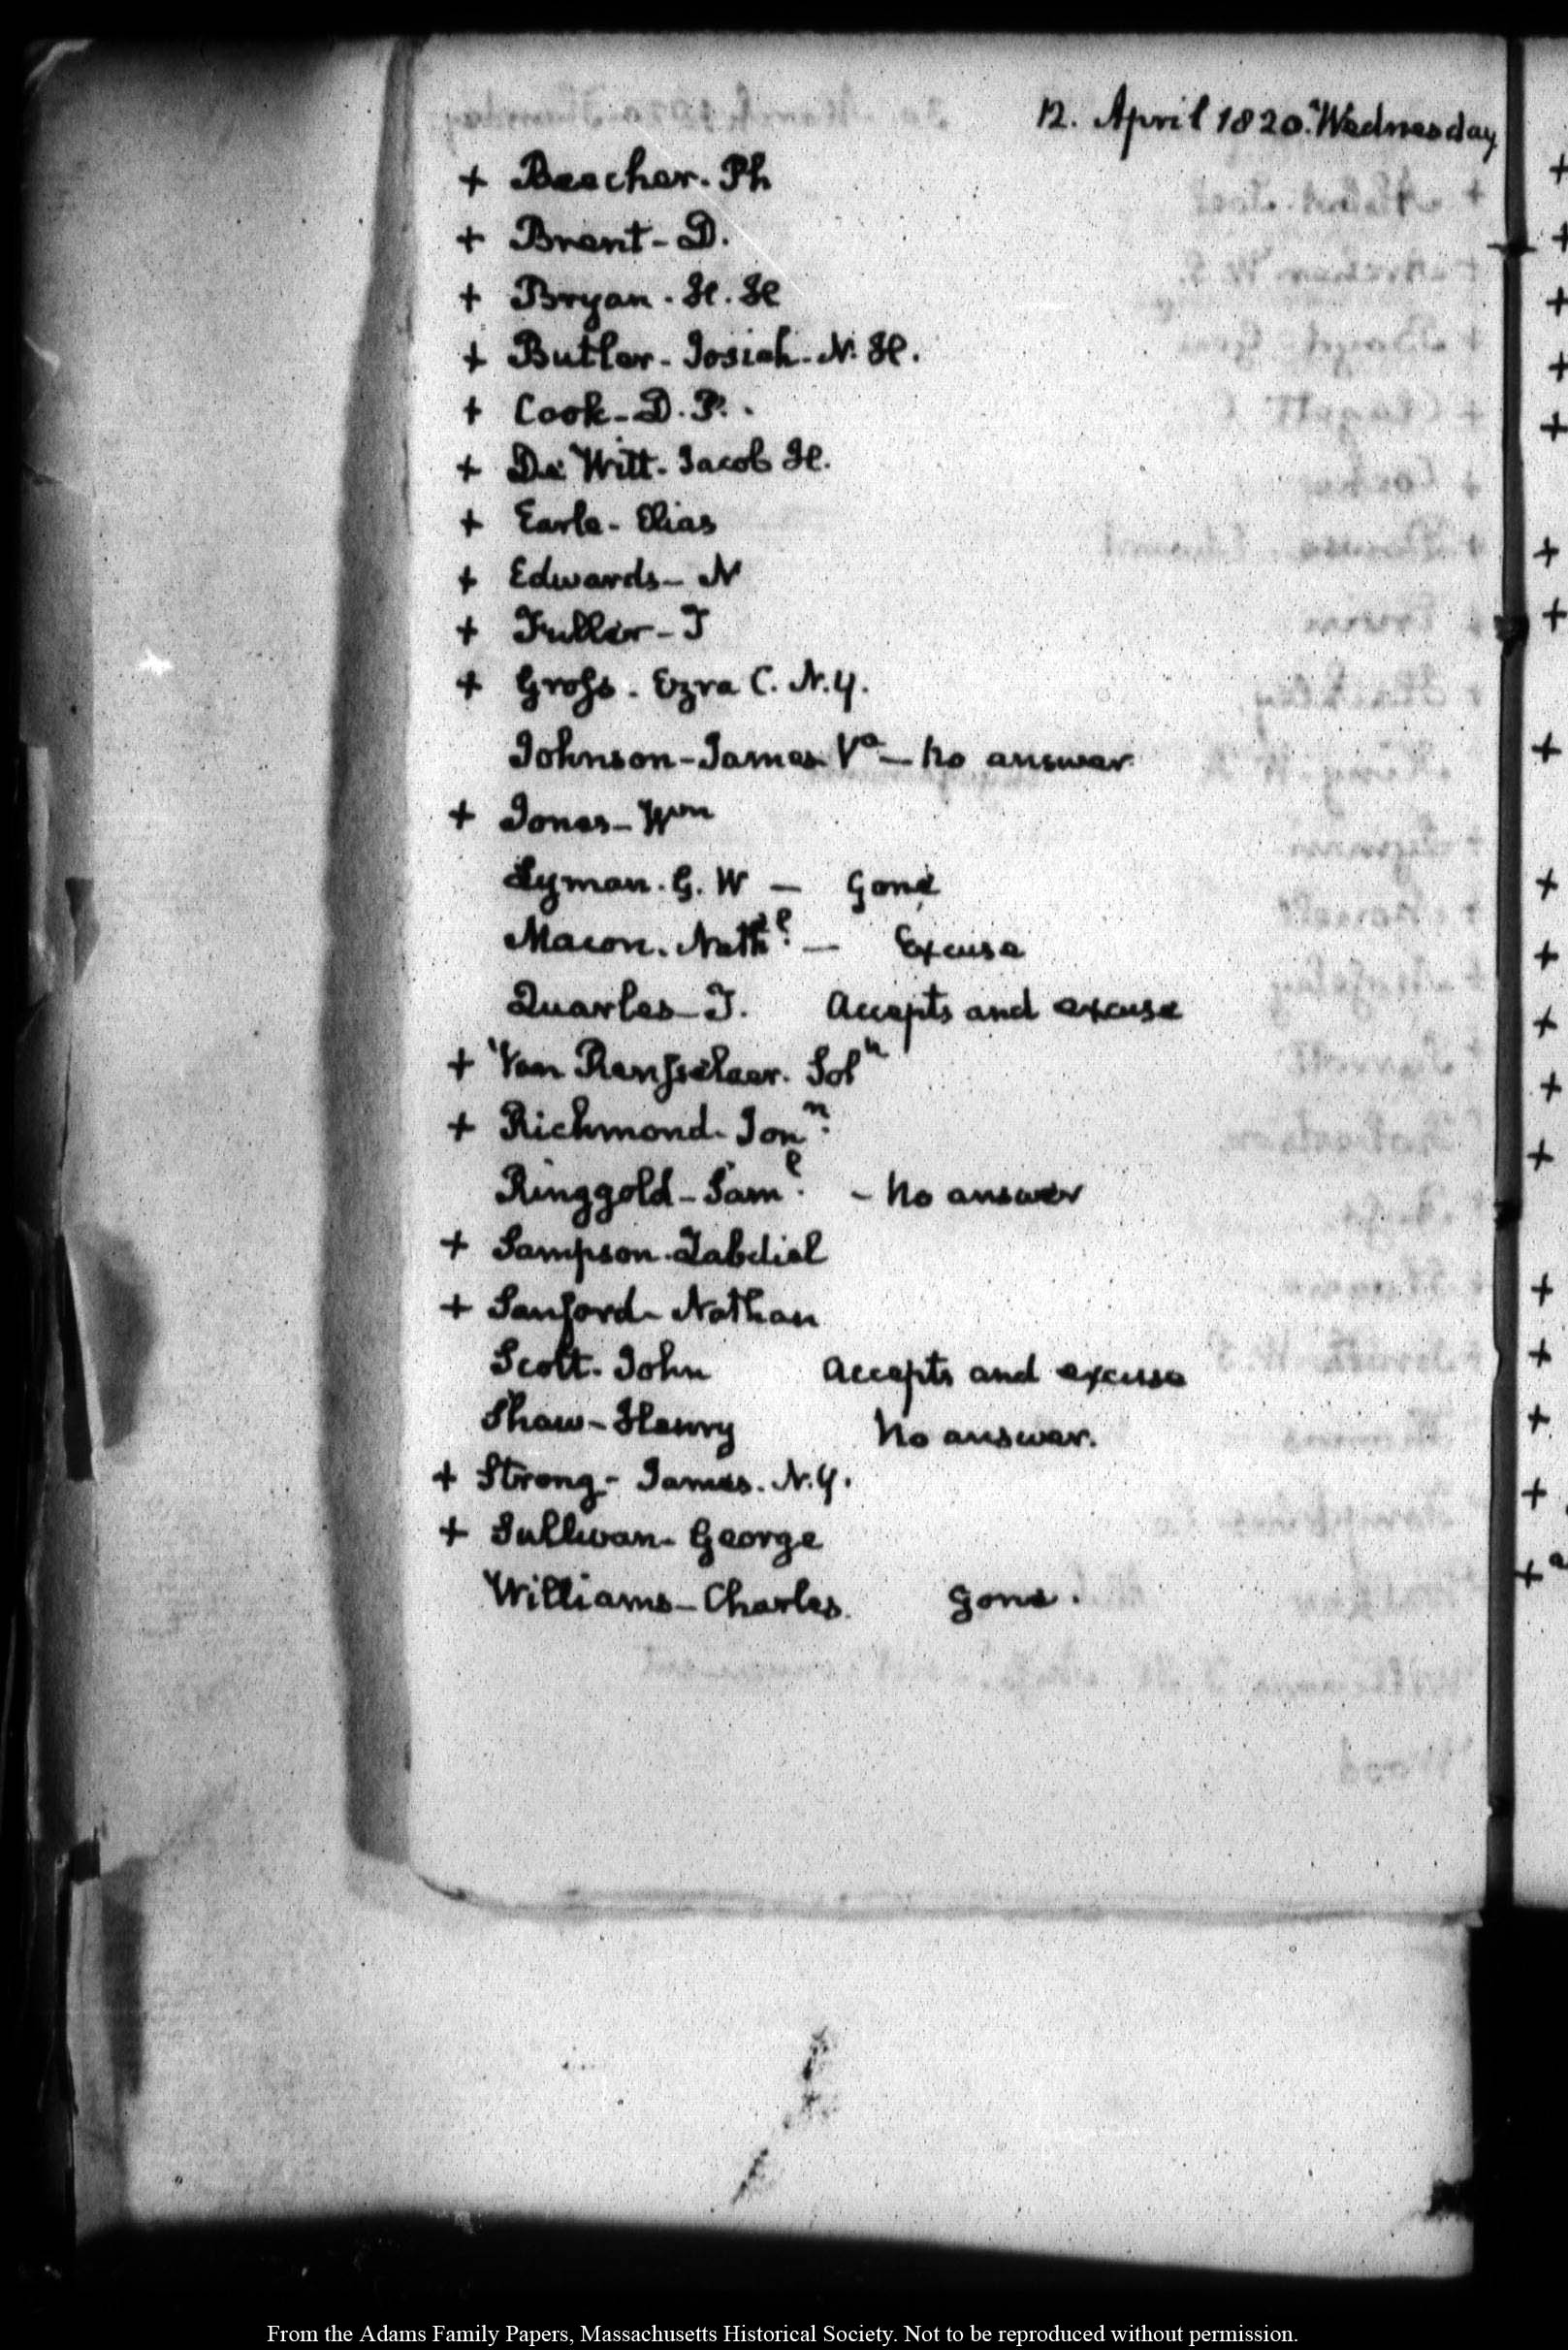 12. April 1820. Wednesday
+ Beecher. Ph
+ Brent - D.
+ Bryan. H. H
+ Butler - Josiah. N. H.
+ Cook - D. P.
+ De Witt. Jacob H.
+ Earle - Elias
+ Edwards - N
+ Fuller - T
+ Gross. Ezra C. N.Y.
Johnson - James Va — No answer
+ Jones - Wm
Lyman. G. W — Gone
Macon. Nathl — Excuse
Quarles - T. Accepts and excuse
+ Van Rensselaer. Soln
+ Richmond - Jonn.
Ringgold - Saml. - No answer
+ Sampson. Zabdiel
+ Sanford - Nathan
Scott. John Accepts and excuse
Shaw - Henry No answer.
+ Strong - James. N.Y.
+ Sullivan - George
Williams - Charles. gone.
From the Adams Family Papers, Massachusetts Historical Society. Not to be reproduced without permission.